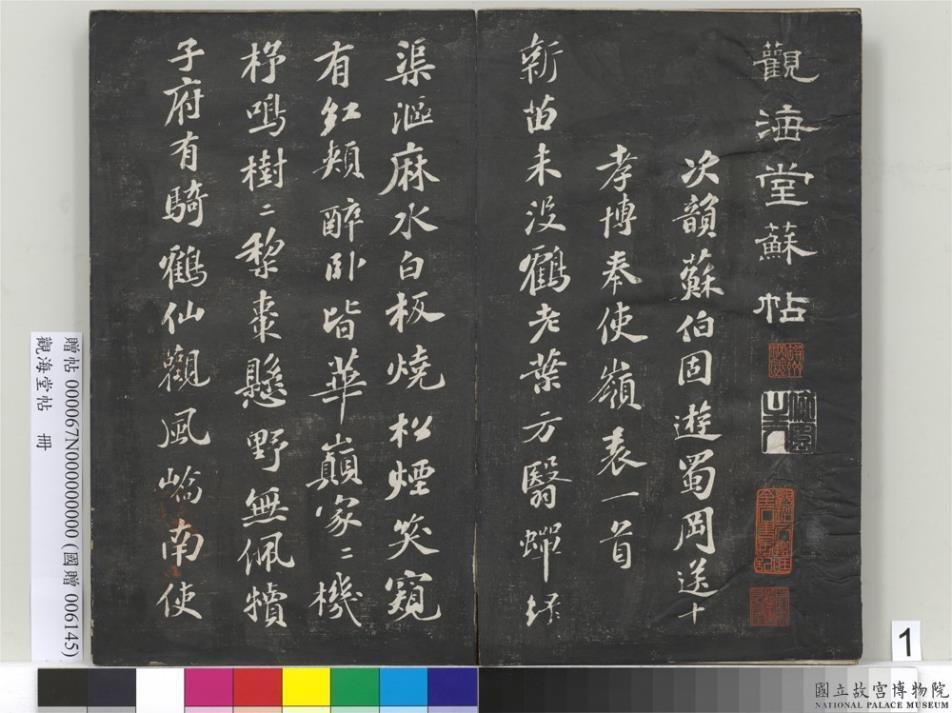 觀海堂蘇帖
次韻蘇伯固遊蜀岡送十
孝博奉使嶺表一首
新苗未沒鶴老葉方翳蟬綠
渠漚麻水白板燒松煙笑窺
有紅頰醉卧皆華巔家〻機
杼鳴樹〻黎棗懸野無佩犢
子府有騎鶴仙觀風嶠南使
贈帖 000067N000000000 (國贈 006145)
觀海堂帖 冊
1
國立故宮博物院
NATIONAL PALACE MUSEUM